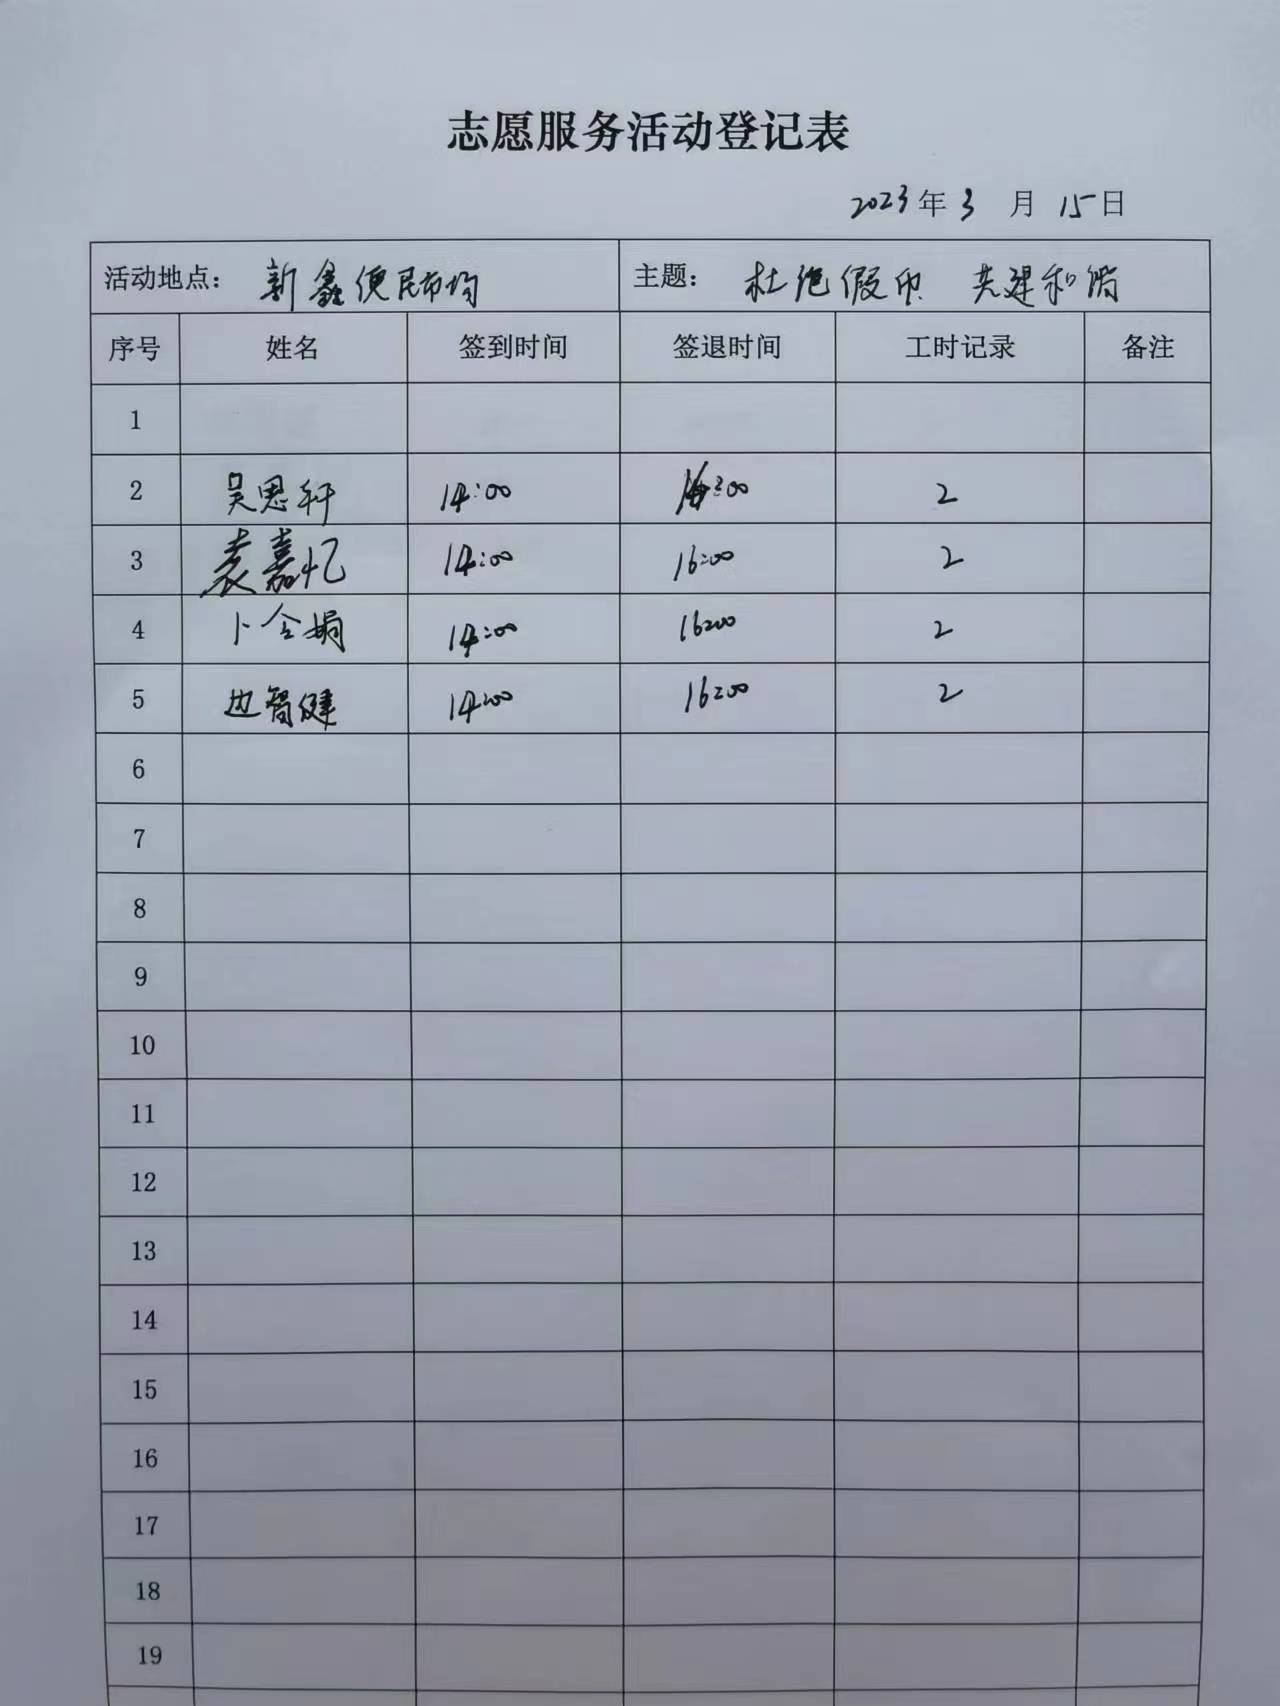 志愿服务活动登记表
2023年 3 月 15日
活动地点： 新鑫便民市场 主题： 杜绝假币 共建和谐
序号 姓名 签到时间 签退时间 工时记录 备注
1
2 吴思轩 14:00 16:00 2
3 袁嘉忆 14:00 16:00 2
4 卜令娟 14:00 16:00 2
5 边智健 14:00 16:00 2
6
7
8
9
10
11
12
13
14
15
16
17
18
19